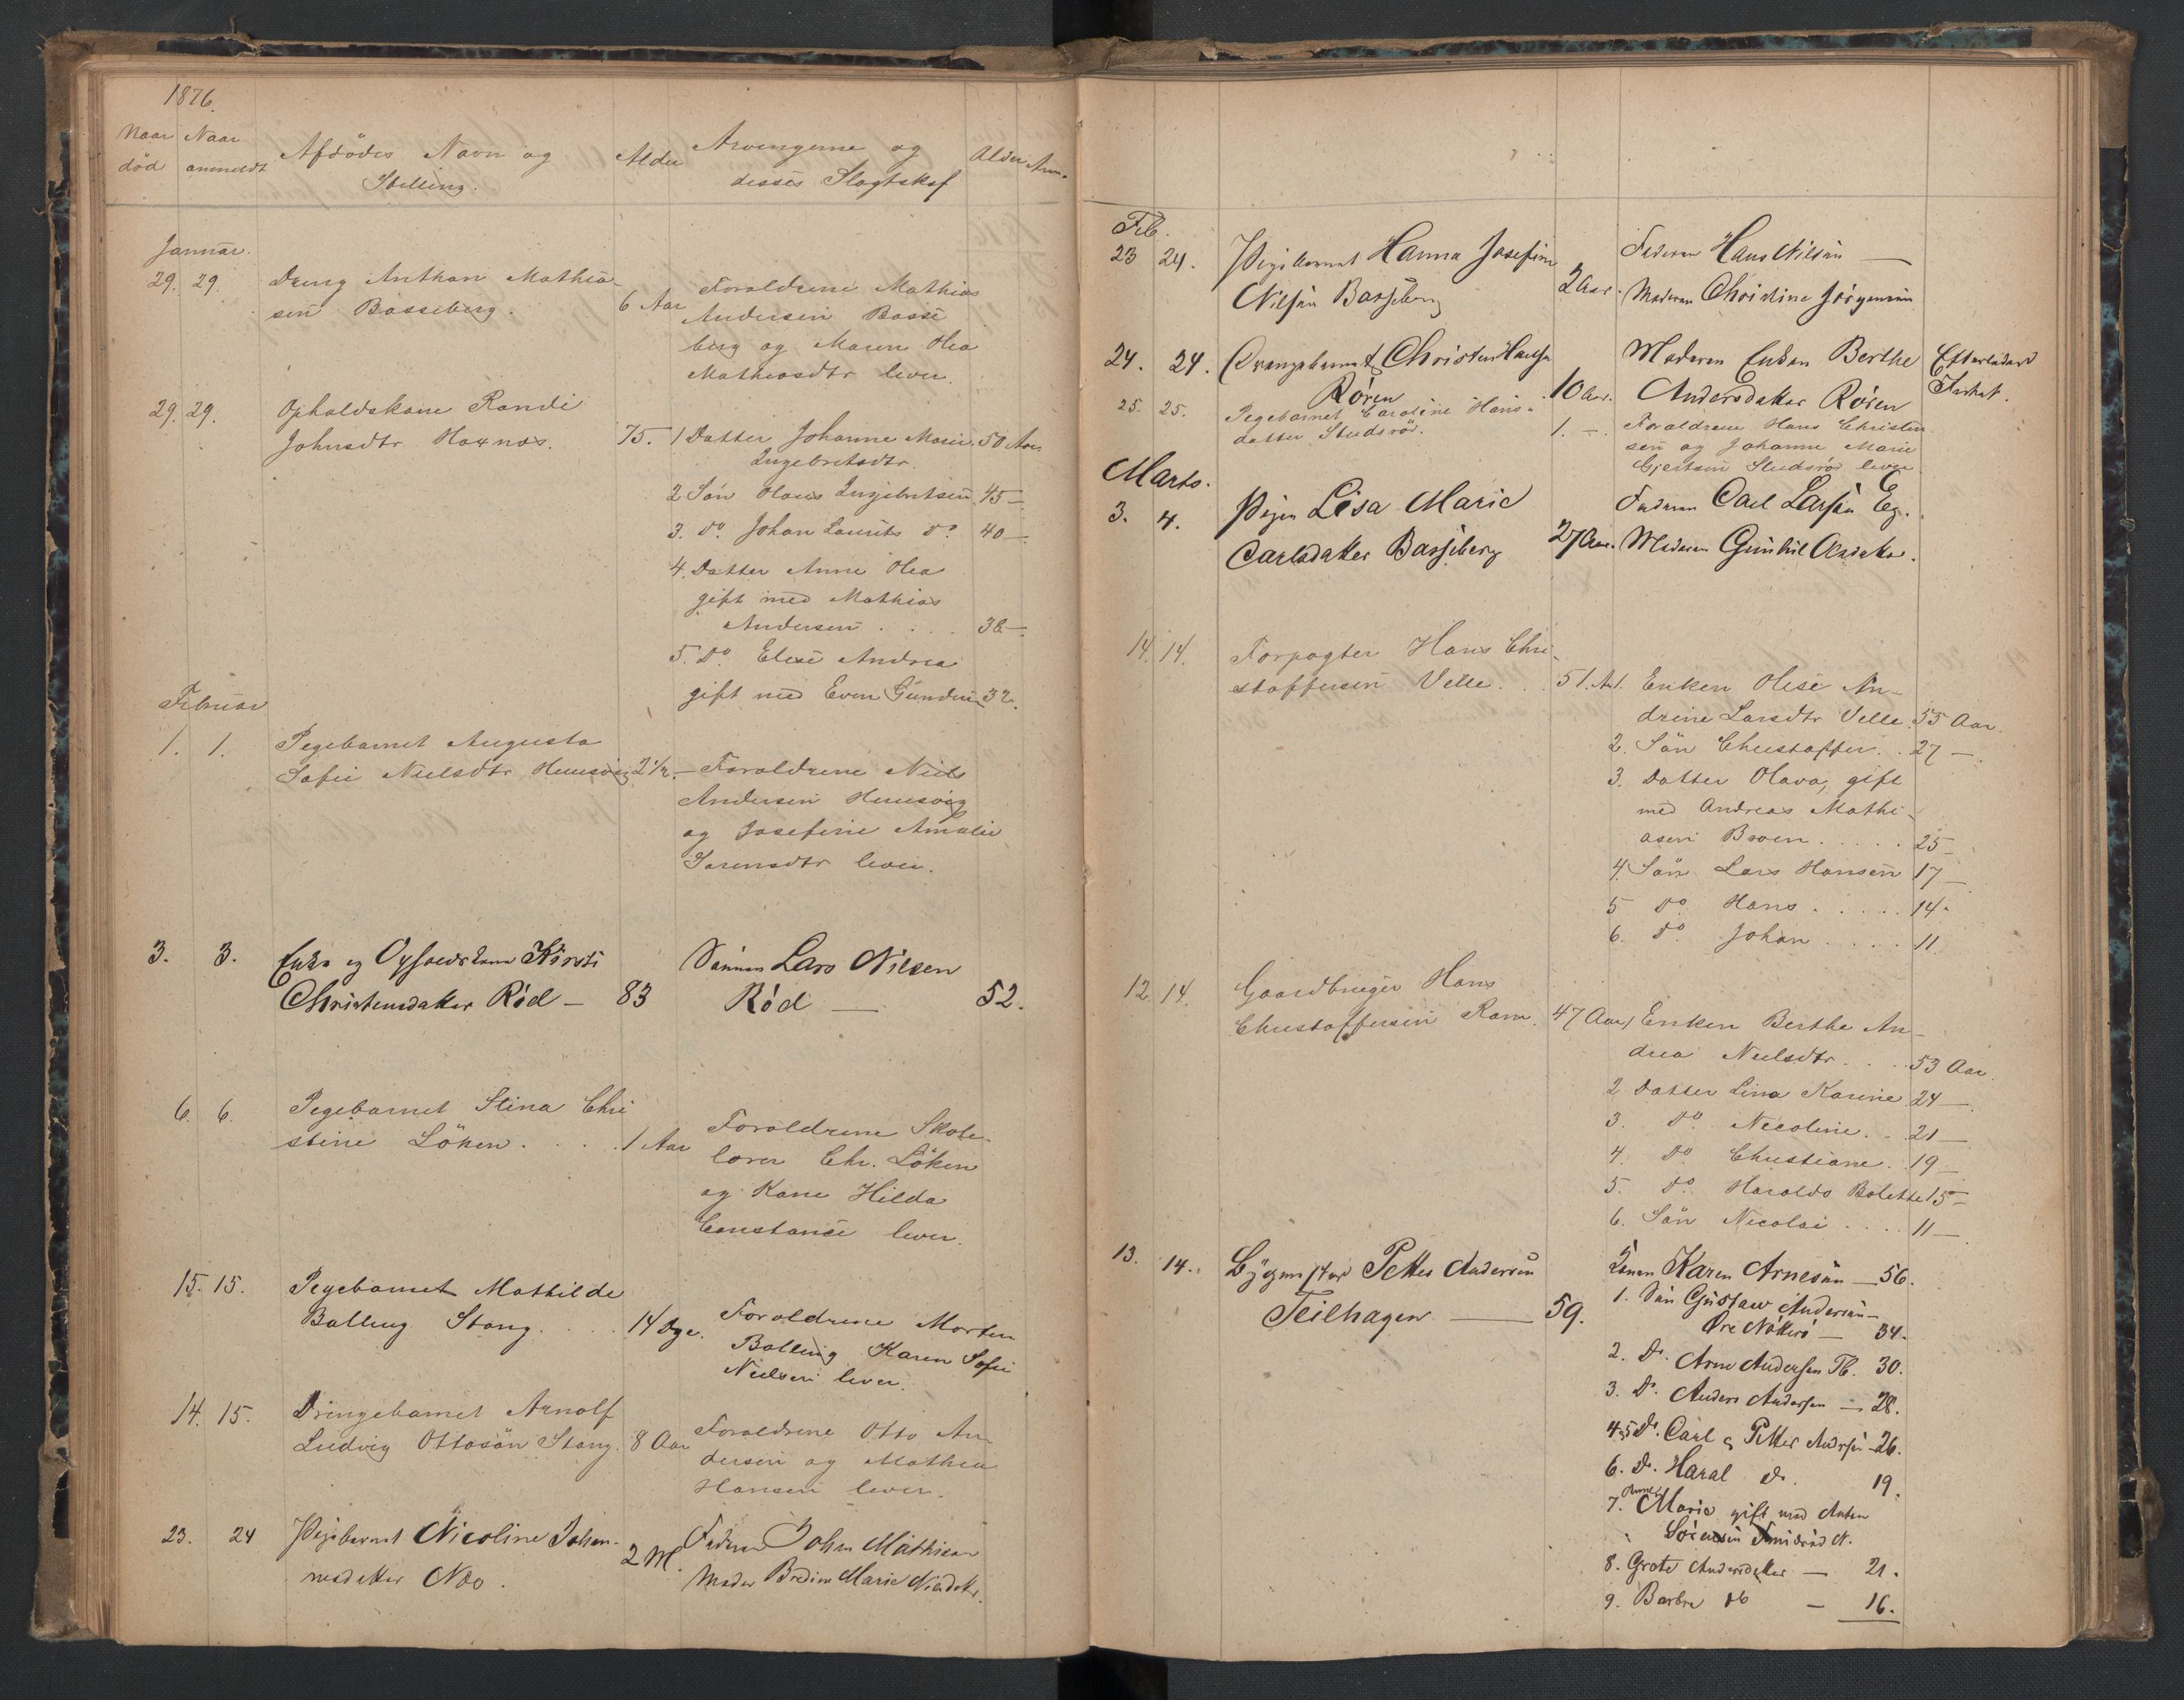 1876.
Naar Naar
död anmeldt
Afdödes Navn og
Stilling.
Alder
Arvingerne og
disses Slagtskaf
Alder Anm.
Januar.
29. 29. Dreng Anthon Mathia-
sen Basseberg. 6 Aar
Foraldrene Mathias
Andersen Basse
berg og Maren Olea
Mathiasdtr lever.
29. 29. Opholdskone Randi
Johnsdtr Haxnæs. 75. 1 Datter Johanne Marie 50 Aar
Ingebretsdtr.
2 Sön Olaus Ingebretsen 45 —
3. do. Johan Laurits do 40 —
4. Datter Anne Olea
gift med Mathias
Andersen . . . . 38 —
5. Do. Elise Andrea
gift med Even Gundersen 32.
Februar
1. 1. Pegebarnet Augusta
Sofie Nielsdtr 2 1/2. — Foraldrene Niels
Andersen
og Josefine Amalie
Sorensdtr lever.
3. 3. Enke og Opholdskone Kirsti
Christensdatter Röd — 83
Sönnen Lars Nilsen
Röd — 52.
6. 6. Pegebarnet Stina Chri
stine Löken . . . . 1 Aar
Foraldrene Skole-
lærer Chr. Löken
og Kone Hilda
Constance lever.
15. 15. Pegebarnet Mathilde
Balling Stang. . . . 14 Dge.
Foraldrene Morten
Balling Karen Sofie
Nielsen lever.
14. 15. Drengebarnet Arnolf
Ludvig Ottosön Stang. 8 Aar
Foraldrene Otto An-
dersen og Mathea
Hansen lever.
23. 24 Pigebarnet Nicoline Johan-
nesdatter Næs. 2 M.
Faderen John Mathisen
Moder Marie Nilsdtr.
Feb.
23 24. Pigebarnet Hanna Josefine
Nilsen Basseberg 2 Aar.
Faderen Hans Nilsen —
Moderen Christine Jörgensen
24. 24. Drengebarnet Christen Hansen
Rören 10 Aar.
Moderen Enken Berthe
Andersdatter Rören
Efterladend
25. 25. Pegebarnet Caroline Hans-
datter Studsröd. 1. —.
Foraldrene Hans Christen
sen og Johanne Marie
Gjertsen Studsröd lever
Marts.
3. 4. Pigen Lisa Marie
Carlsdatter Basseberg 27 Aar.
Faderen Carl Larsen Eg.
Moderen Gunhil Olsdatter.
14. 14. Forpagter Hans Chri-
stoffersen Velle. . . 51. Aar 1. Enken Olise An-
drine Larsdtr Velle 55 Aar.
2. Sön Christoffer. . 27 —
3. Datter Olava, gift
med Andreas Mathi-
asen Broen . . . . . 25 —
4. Sön Lars Hansen 17 —
5 do Hans . . . . . 14.
6. do Johan . . . . 11.
12. 14. Gaardbruger Hans
Christoffersen Ram. 47 Aar 1 Enken Berthe An-
drea Nielsdtr . . . 53 Aar.
2 Datter Lina Karine 24 —
3. Do. Nicoline. . . 21 —
4. Do Christiane. . 19 —
5. Do. Haralda Bolette 15 —
6. Sön Nicolai . . . . 11 —
13. 14. Bygmester Petter Andersen
Teilhagen — 59.
Konen Karen Arnesen — 56.
1. Sön Gustaw Andersen —
Öre Nötterö — 34.
2. Do. Arne Andersen Th. 30.
3. Do. Anders Andersen — 28.
4 & 5 Do. Carl & Petter Andersen — 26.
6. Do. Haral do. 19.
7. Marie gift med Anton
Sörensen N.
8. Grete Andersdatter — 21.
9. Barbra do — 16.